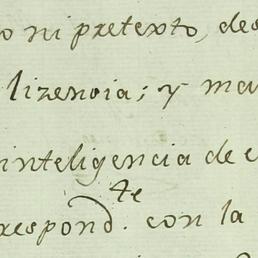 o ni pretexto, des
lizencia; y ma
inteligencia de e
respond.te con la